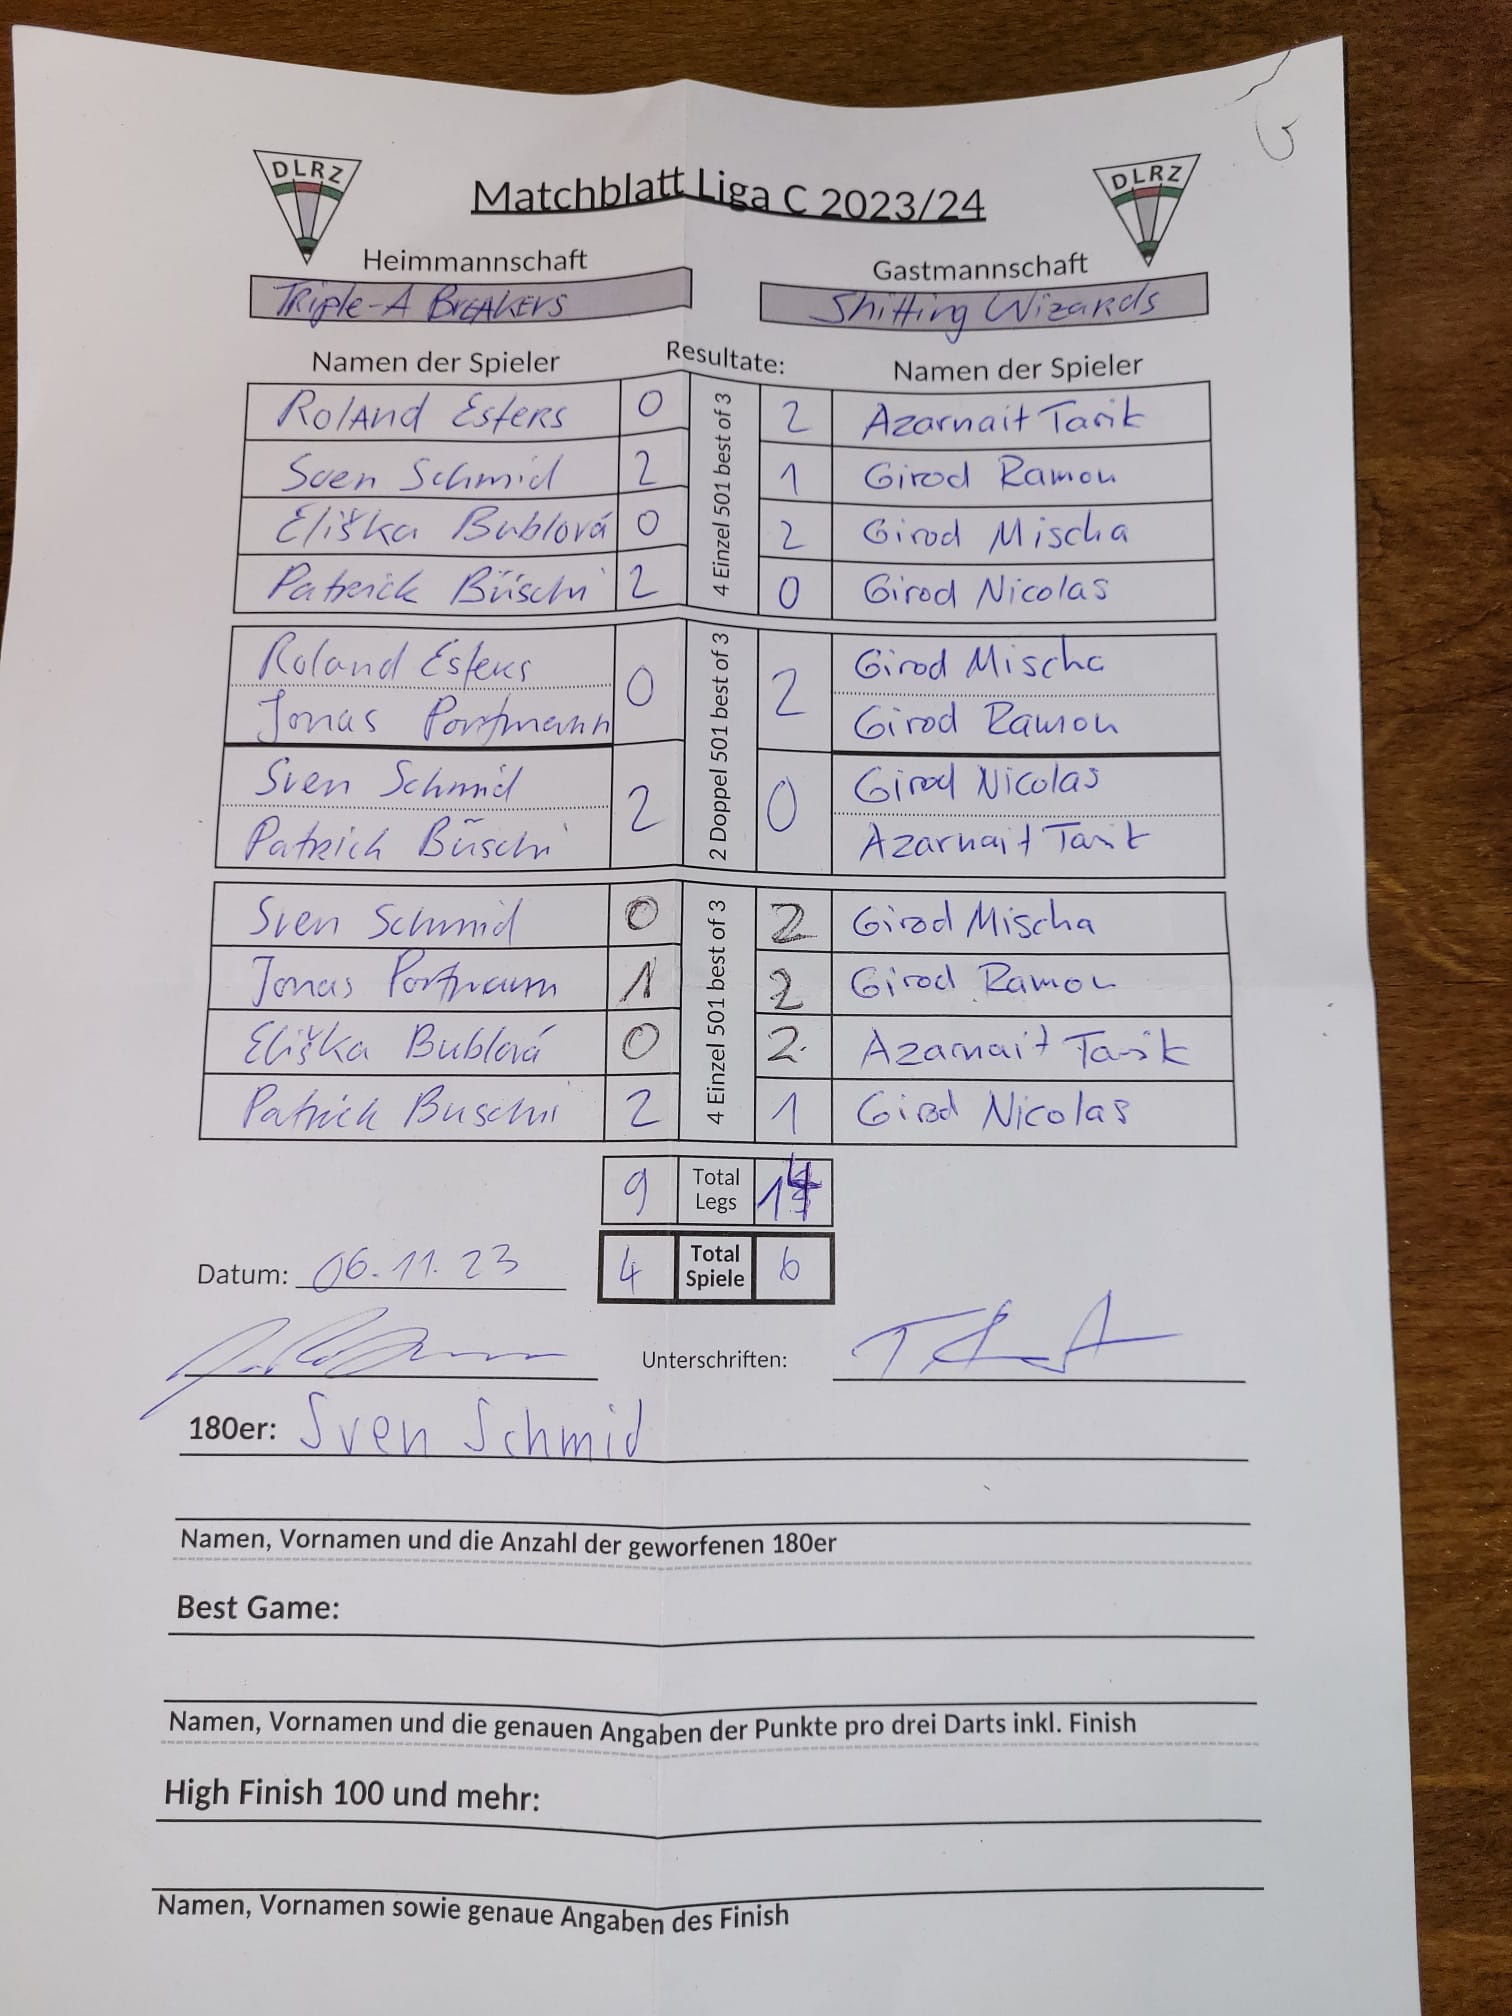 DLRZ DLRZ
Matchblatt Liga C 2023/24
Heimmannschaft Gastmannschaft
Triple-A Breakers Shitting Wizards
Namen der Spieler Resultate: Namen der Spieler
4 Einzel 501 best of 3
Roland Esters 0 2 Azarnait Tarik
Sven Schmid 2 1 Girod Ramon
Eliška Bublová 0 2 Girod Mischa
Patrick Büschi 2 0 Girod Nicolas
2 Doppel 501 best of 3
Roland Esters 0 2 Girod Mischa
Jonas Portmann Girod Ramon
Sven Schmid 2 0 Girod Nicolas
Patrick Büschi Azarnait Tarik
4 Einzel 501 best of 3
Sven Schmid 0 2 Girod Mischa
Jonas Portmann 1 2 Girod Ramon
Eliška Bublová 0 2 Azarnait Tarik
Patrick Buschi 2 1 Girod Nicolas
9 Total Legs 14
Datum: 06.11.23 4 Total Spiele 6
Unterschriften:
180er: Sven Schmid
Namen, Vornamen und die Anzahl der geworfenen 180er
Best Game:
Namen, Vornamen und die genauen Angaben der Punkte pro drei Darts inkl. Finish
High Finish 100 und mehr:
Namen, Vornamen sowie genaue Angaben des Finish